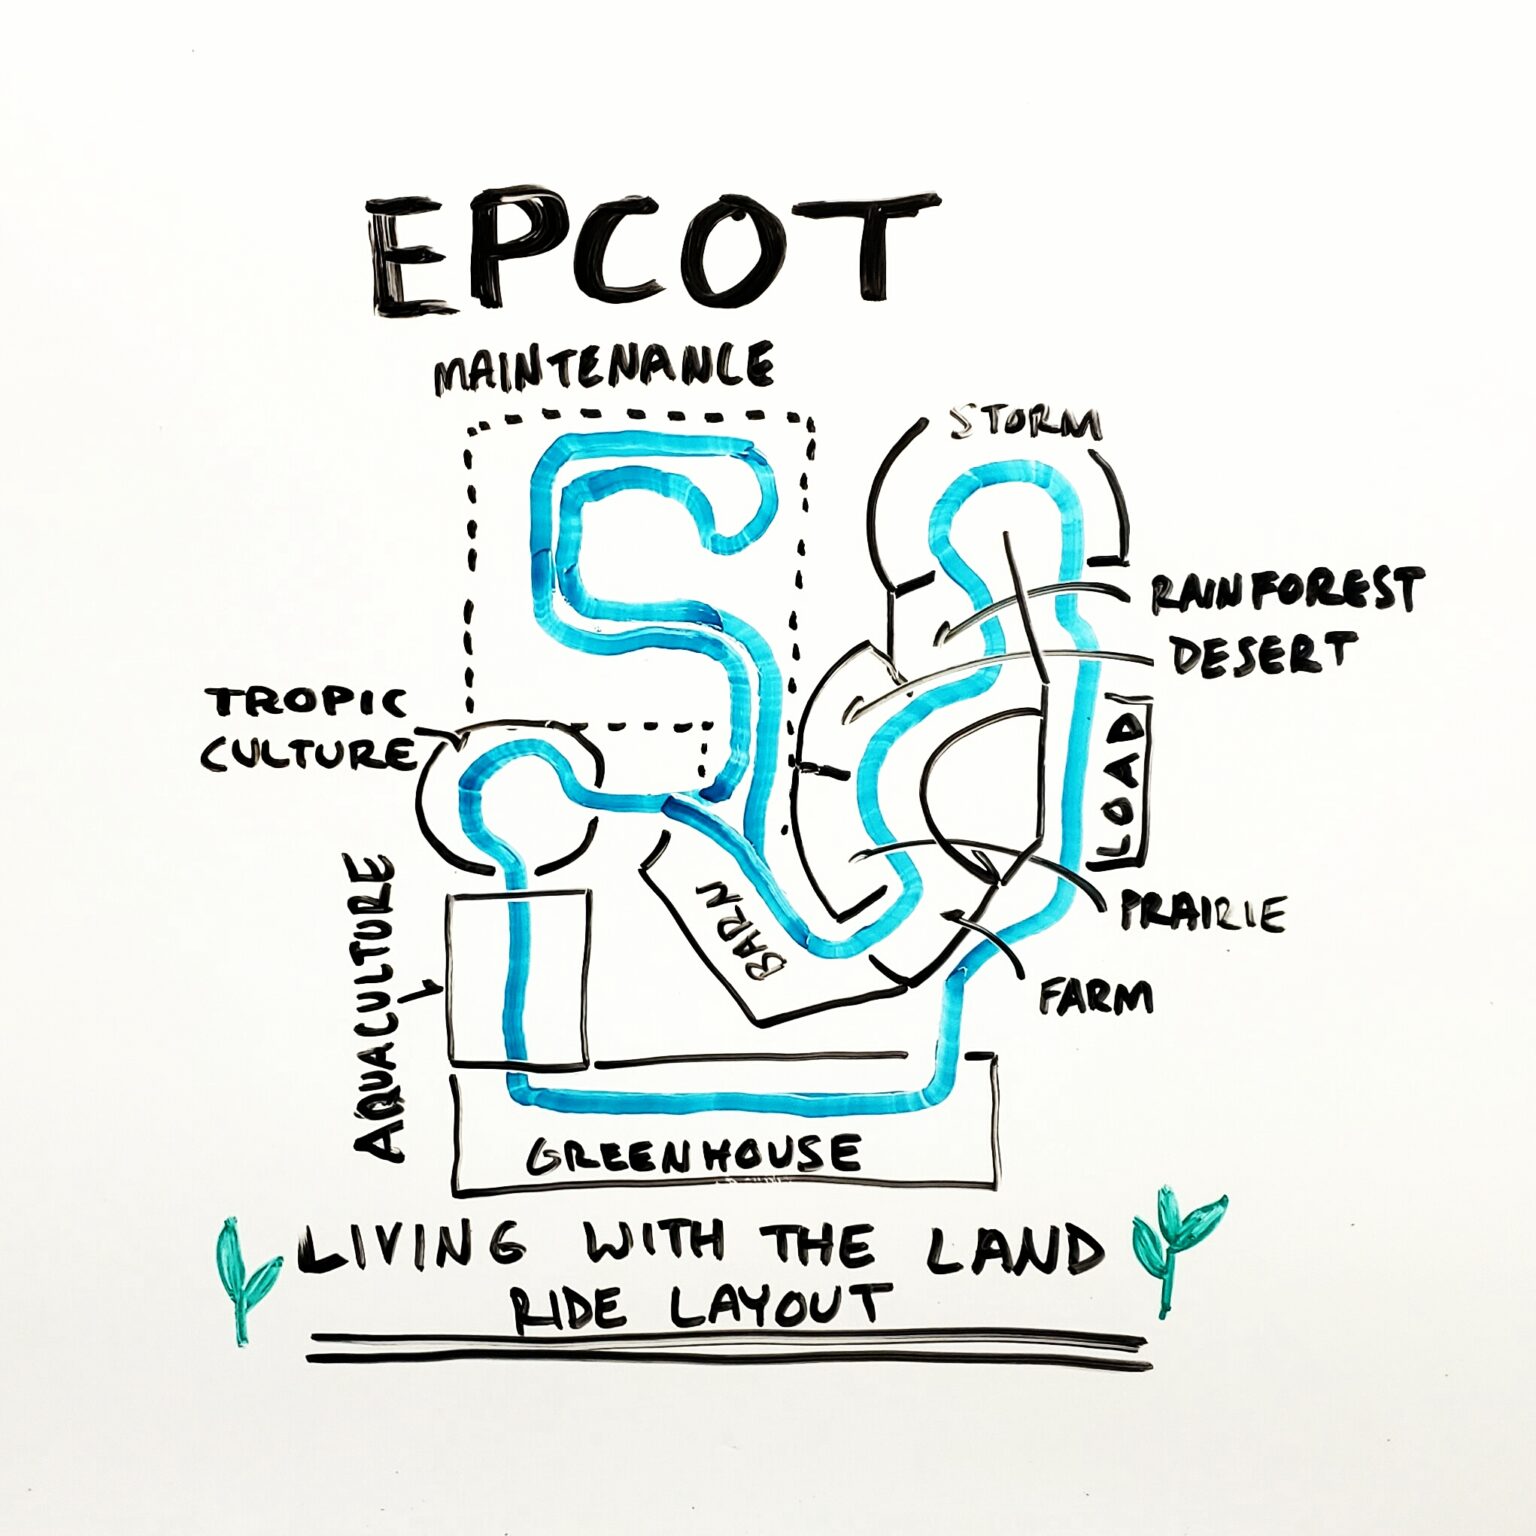 EPCOT
MAINTENANCE
STORM
RAINFOREST
DESERT
TROPIC
CULTURE
LOAD
AQUACULTURE
BARN
PRAIRIE
FARM
GREENHOUSE
LIVING WITH THE LAND
RIDE LAYOUT